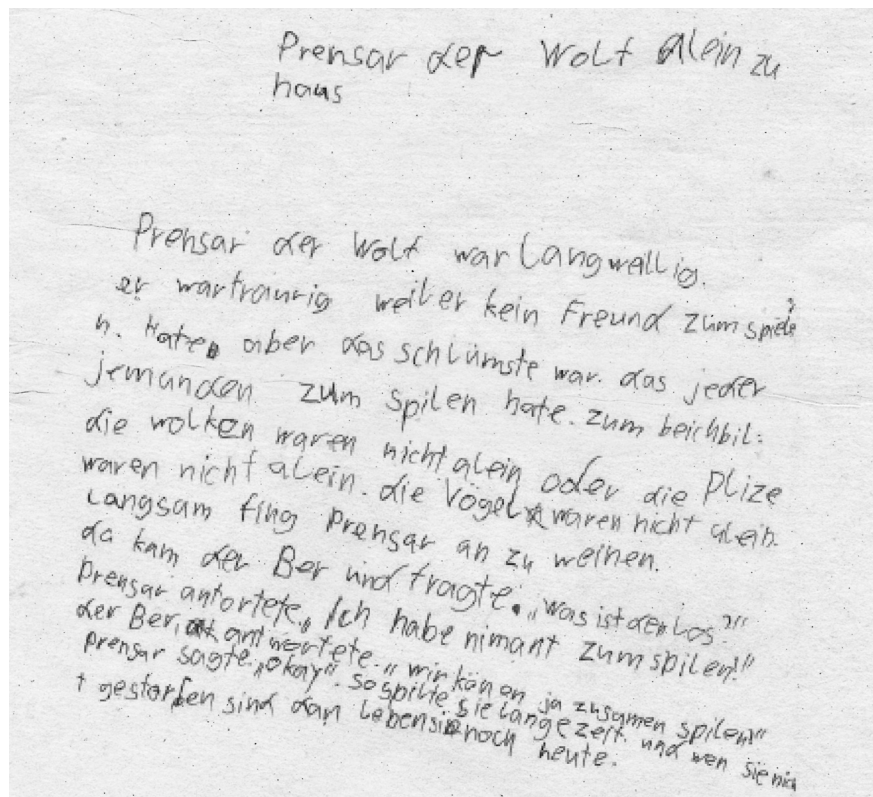 Prensar der Wolf Alein zu
haus
Prensar der Wolf war langweilig.
er war traurig weil er kein Freund zum spiele
n. Hate aber das schlümste war. das jeder
jemanden zum spilen hate. zum beichbil:
die wolken waren nicht alein oder die Plize
waren nicht alein. die Vögel waren nicht alein.
Langsam fing Prensar an zu weinen.
da kam der Ber und fragte. „was ist den los?"
Prensar antortete„ Ich habe nimant zum spilen!"
der Ber, antwortete.„ wir könen ja zusamen spilen!"
Prensar sagte.„okay". So spilte sie lange zeit. und wen sie nich
t gestorben sind dan leben sie noch heute.